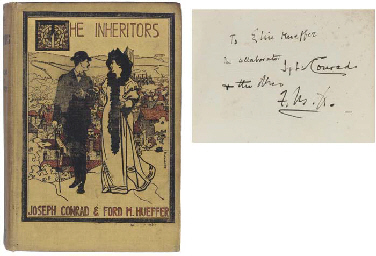 THE INHERITORS
JOSEPH CONRAD & FORD M. HUEFFER
To Elsie Hueffer
Jph Conrad
& the other
F. M. H.